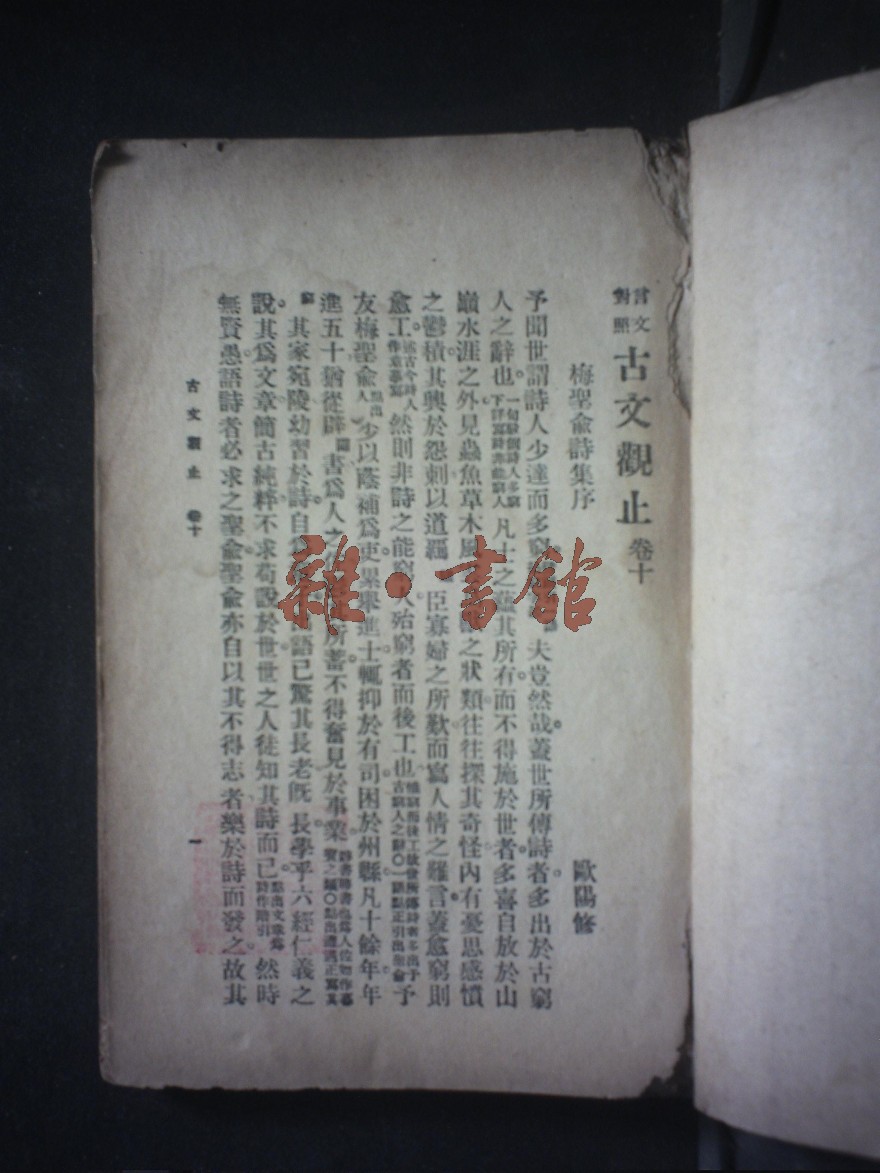 言文對照 古文觀止 卷十
梅聖俞詩集序 歐陽修
予聞世謂詩人少達而多窮 夫豈然哉蓋世所傳詩者多出於古窮
人之辭也 凡士之 其所有而不得施於世者多喜自放於山
巔水涯之外見蟲魚草木風 之狀類往往探其奇怪內有憂思感憤
之鬱積其興於怨刺以道羈 臣寡婦之所歎而寫人情之難言蓋愈窮則
愈工 然則非詩之能窮人殆窮者而後工也 予
友梅聖俞 點出人 少以蔭補為吏累舉進士輒抑於有司困於州縣凡十餘年年
進五十猶從辟 書為人之 所蓄不得奮見於事業
其家宛陵幼習於詩自 語已驚其長老旣長學乎六經仁義之
說其為文章簡古純粹不求苟說於世世之人徒知其詩而已 然時
無賢愚語詩者必求之聖俞聖俞亦自以其不得志者樂於詩而發之故其
古文觀止 卷十 一
雜·書館